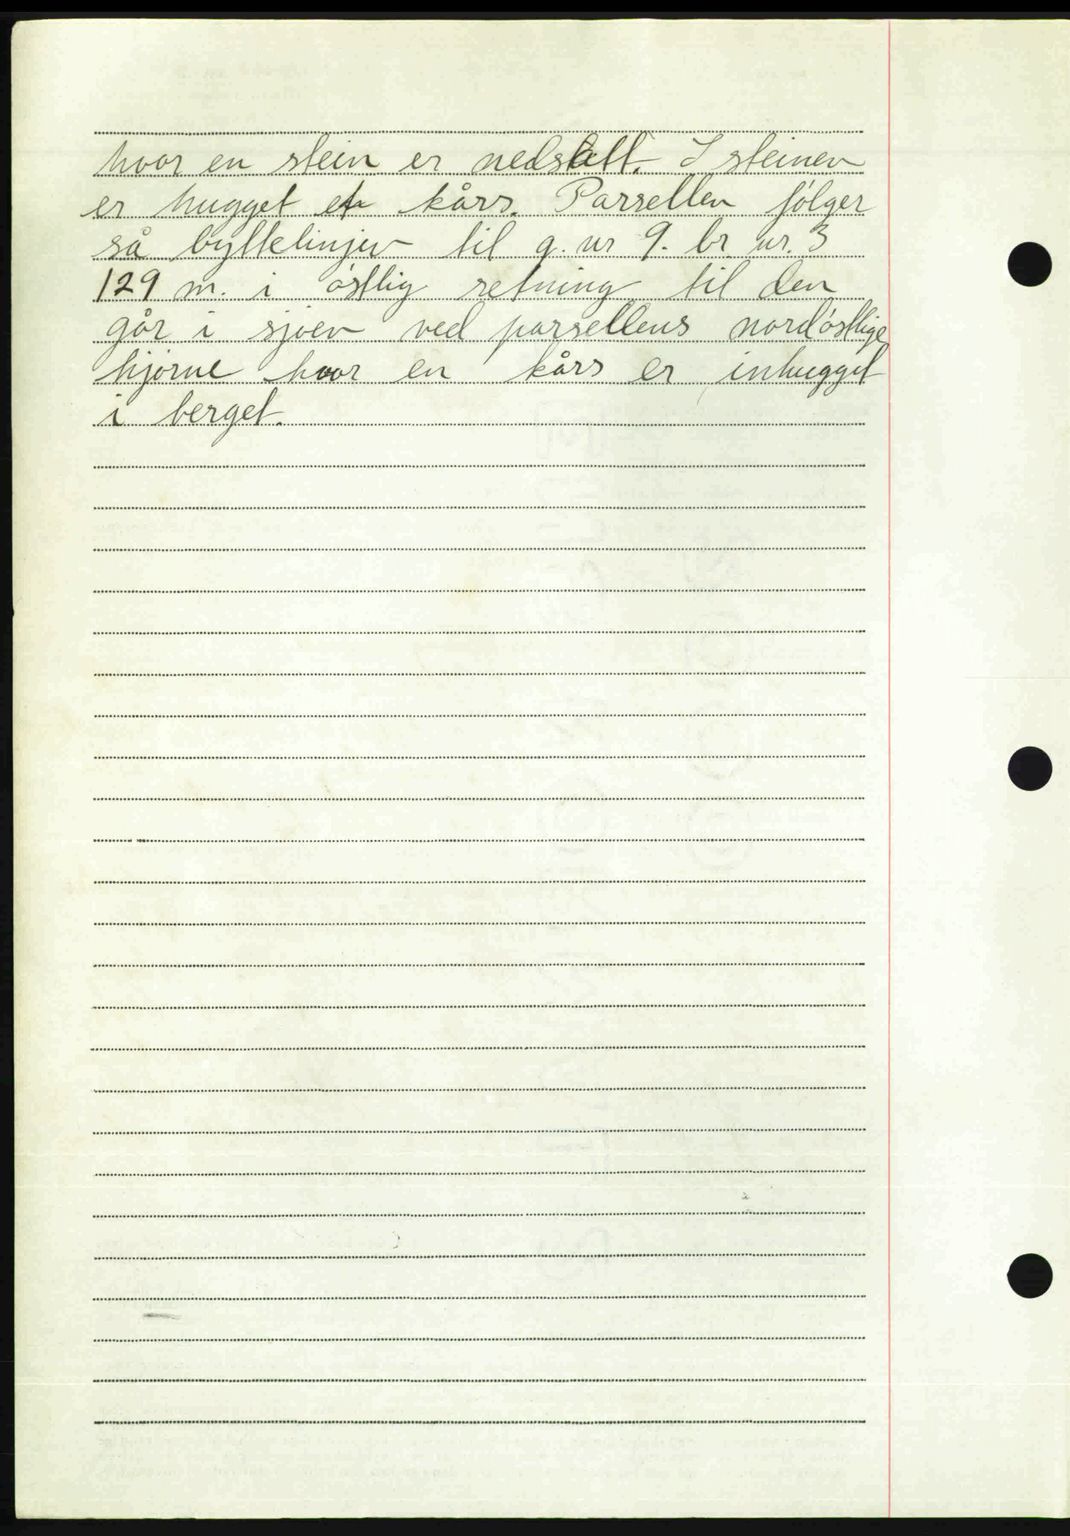 hvor en stein er nedsatt. I steinen
er hugget et kårs. Parsellen følger
så byttelinjen til g. nr 9. br nr. 3
129 m. i østlig retning til den
går i sjøen ved parsellens nordøstlige
hjørne hvor en kårs er inhugget
i berget.